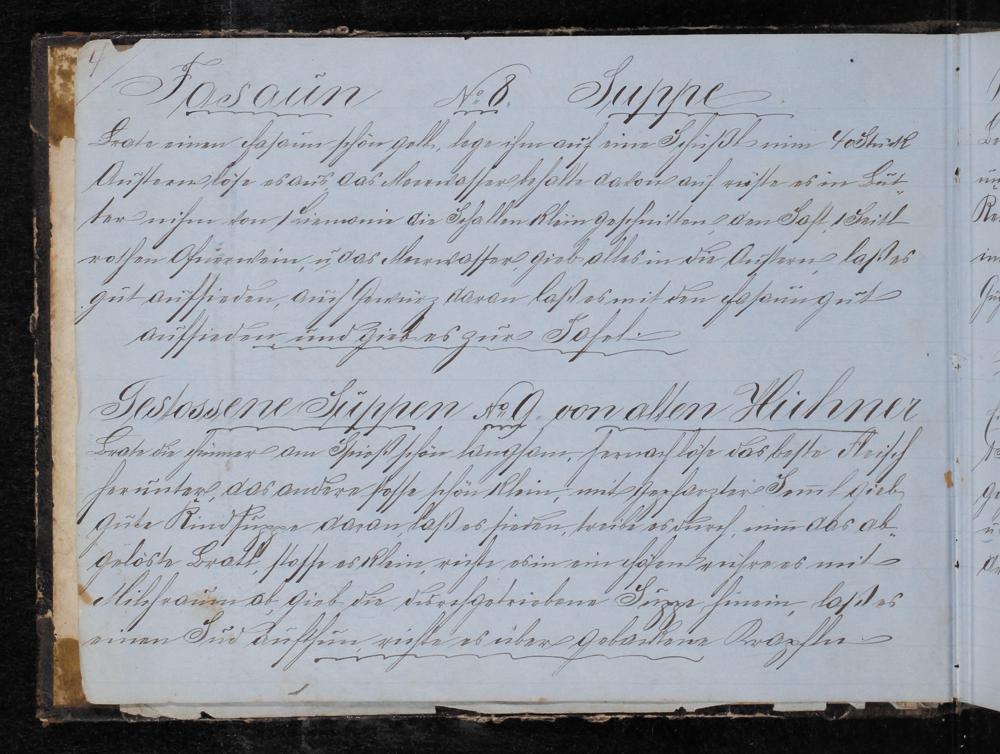 4
Fasaün No 8. Suppe
Brate einen Fasaun schön gelb, lege ihm auf eine Schüßl nim 40 Stück
Austern löse es aus, das Meerwasser behalte davon auf röste es in But-
ter nihm von 1 Lemonie die Schallen klein geschnitten, den Saft, 1 Seitl
rothen Ofnerwein, u das Meerwasser, gieb alles in die Austern, laß es
gut aufsieden, auch Gewürz daran laß es mit den Fasaun gut
aufsieden und gieb es zur Tafel.
Gestossene Suppen No 9. von alten Hühner
Brate die Hünner am Spieß schön langsam, hernach löse das beste Fleisch
herunter, das andere stosse schön klein, mit Seml gieb
gute Rindsuppe daran, laß es sieden, treibe es durch, nim das ab-
gelöste Bratl, stosse es klein, richte es in ein Höfen rühre es mit
Milchraum ab, gieb die durchgetriebene Suppe hinein, laß es
einen Sud aufthun, richte es über gebackene Krapfln.